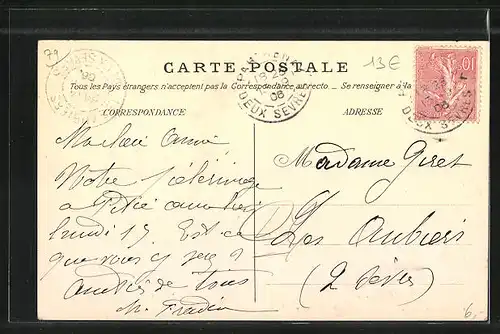 79
13€
CARTE POSTALE
Tous les Pays étrangers n'acceptent pas la Correspondance au recto. — Se renseigner à la
CORRESPONDANCE
ADRESSE
DEUX SEVRES
10
08
DEUX SEVRES
Ma chère amie
Notre pélerinage
a Pitié aura lieu
lundi 15. Est ce
que vous y serez ?
amitiés de tous
M. Fradin
Madame Giret
Les Aubiers
(2 Sèvres)
6,-